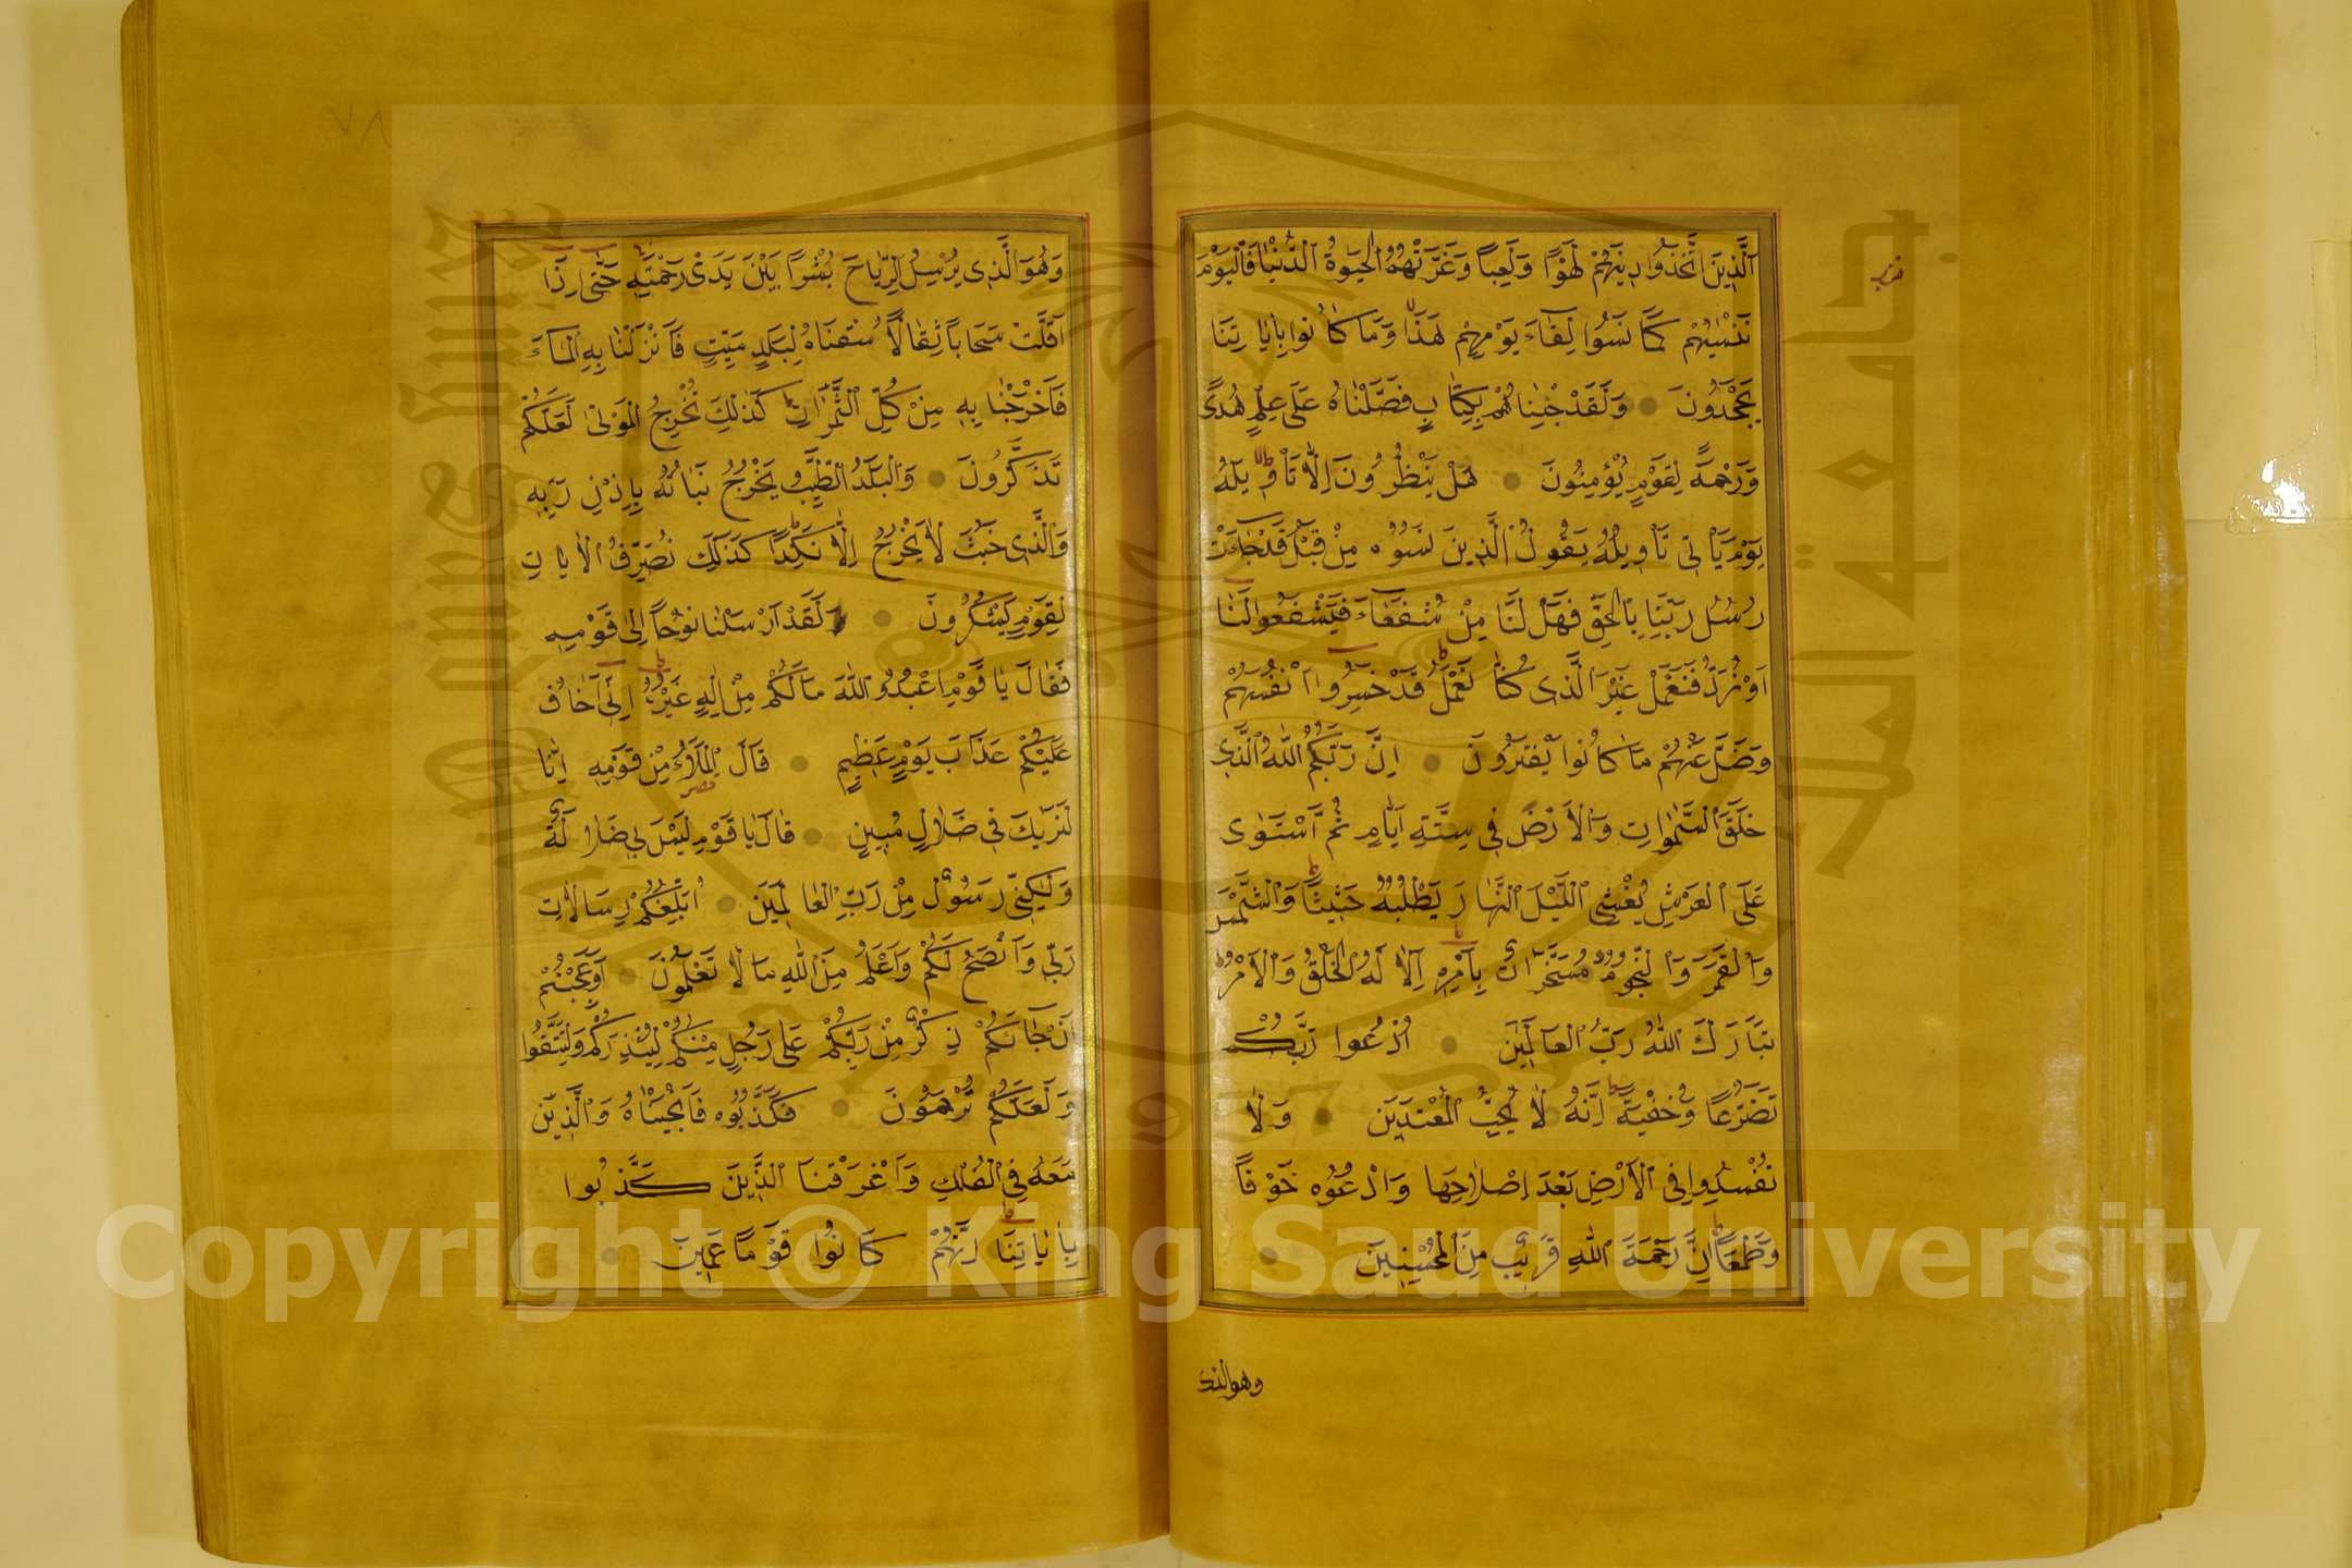 اَلَّذِينَ اتَّخَذُوا دِينَهُمْ لَهْوًا وَلَعِبًا وَغَرَّتْهُمُ الْحَيٰوةُ الدُّنْيَا فَالْيَوْمَ
نَنْسٰيهُمْ كَمَا نَسُوا لِقَاءَ يَوْمِهِمْ هٰذَا وَمَا كَانُوا بِاٰيَاتِنَا
يَجْحَدُونَ وَلَقَدْ جِئْنَاهُمْ بِكِتَابٍ فَصَّلْنَاهُ عَلٰى عِلْمٍ هُدًى
وَرَحْمَةً لِقَوْمٍ يُؤْمِنُونَ هَلْ يَنْظُرُونَ اِلَّا تَأْوِيلَهُ
يَوْمَ يَأْتِى تَأْوِيلُهُ يَقُولُ الَّذِينَ نَسُوهُ مِنْ قَبْلُ قَدْ جَاءَتْ
رُسُلُ رَبِّنَا بِالْحَقِّ فَهَلْ لَنَا مِنْ شُفَعَاءَ فَيَشْفَعُوا لَنَا
اَوْ نُرَدُّ فَنَعْمَلَ غَيْرَ الَّذِى كُنَّا نَعْمَلُ قَدْ خَسِرُوا اَنْفُسَهُمْ
وَضَلَّ عَنْهُمْ مَا كَانُوا يَفْتَرُونَ اِنَّ رَبَّكُمُ اللّٰهُ الَّذِى
خَلَقَ السَّمٰوَاتِ وَالْاَرْضَ فِى سِتَّةِ اَيَّامٍ ثُمَّ اسْتَوٰى
عَلَى الْعَرْشِ يُغْشِى اللَّيْلَ النَّهَارَ يَطْلُبُهُ حَثِيثًا وَالشَّمْسَ
وَالْقَمَرَ وَالنُّجُومَ مُسَخَّرَاتٍ بِاَمْرِهِ اَلَا لَهُ الْخَلْقُ وَالْاَمْرُ
تَبَارَكَ اللّٰهُ رَبُّ الْعَالَمِينَ اُدْعُوا رَبَّكُمْ
تَضَرُّعًا وَخُفْيَةً اِنَّهُ لَا يُحِبُّ الْمُعْتَدِينَ وَلَا
تُفْسِدُوا فِى الْاَرْضِ بَعْدَ اِصْلَاحِهَا وَادْعُوهُ خَوْفًا
وَطَمَعًا اِنَّ رَحْمَةَ اللّٰهِ قَرِيبٌ مِنَ الْمُحْسِنِينَ
وهو الذى
وَهُوَ الَّذِى يُرْسِلُ الرِّيَاحَ بُشْرًا بَيْنَ يَدَىْ رَحْمَتِهِ حَتّٰى اِذَا
اَقَلَّتْ سَحَابًا ثِقَالًا سُقْنَاهُ لِبَلَدٍ مَيِّتٍ فَاَنْزَلْنَا بِهِ الْمَاءَ
فَاَخْرَجْنَا بِهِ مِنْ كُلِّ الثَّمَرَاتِ كَذٰلِكَ نُخْرِجُ الْمَوْتٰى لَعَلَّكُمْ
تَذَكَّرُونَ وَالْبَلَدُ الطَّيِّبُ يَخْرُجُ نَبَاتُهُ بِاِذْنِ رَبِّهِ
وَالَّذِى خَبُثَ لَا يَخْرُجُ اِلَّا نَكِدًا كَذٰلِكَ نُصَرِّفُ الْاٰيَاتِ
لِقَوْمٍ يَشْكُرُونَ وَلَقَدْ اَرْسَلْنَا نُوحًا اِلٰى قَوْمِهِ
فَقَالَ يَا قَوْمِ اعْبُدُوا اللّٰهَ مَا لَكُمْ مِنْ اِلٰهٍ غَيْرُهُ اِنِّى اَخَافُ
عَلَيْكُمْ عَذَابَ يَوْمٍ عَظِيمٍ قَالَ الْمَلَاُ مِنْ قَوْمِهِ اِنَّا
لَنَرٰيكَ فِى ضَلَالٍ مُبِينٍ قَالَ يَا قَوْمِ لَيْسَ بِى ضَلَالَةٌ
وَلٰكِنِّى رَسُولٌ مِنْ رَبِّ الْعَالَمِينَ اُبَلِّغُكُمْ رِسَالَاتِ
رَبِّى وَاَنْصَحُ لَكُمْ وَاَعْلَمُ مِنَ اللّٰهِ مَا لَا تَعْلَمُونَ اَوَعَجِبْتُمْ
اَنْ جَاءَكُمْ ذِكْرٌ مِنْ رَبِّكُمْ عَلٰى رَجُلٍ مِنْكُمْ لِيُنْذِرَكُمْ وَلِتَتَّقُوا
وَلَعَلَّكُمْ تُرْحَمُونَ فَكَذَّبُوهُ فَاَنْجَيْنَاهُ وَالَّذِينَ
مَعَهُ فِى الْفُلْكِ وَاَغْرَقْنَا الَّذِينَ كَذَّبُوا
بِاٰيَاتِنَا اِنَّهُمْ كَانُوا قَوْمًا عَمِينَ
٧٨
جامعة الملك سعود
King Saud University
1957
Copyright © King Saud University